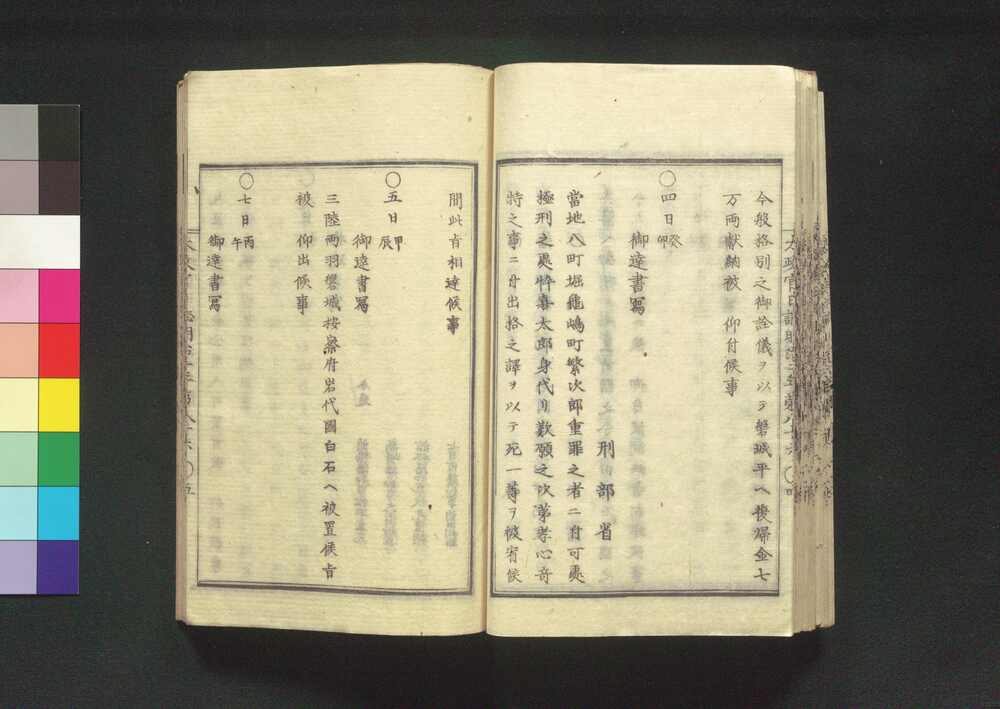 今般格別之御詮儀ヲ以テ磐城平ヘ復帰金七
万両献納被　仰付候事
○四日癸卯
御達書寫
刑部省
當地八町堀龜嶋町繁次郎重罪之者ニ付可處
極刑之處忰喜太郎身代リ歎願之次第孝心奇
特之事ニ付出格之譯ヲ以テ死一等ヲ被宥候
間此旨相達候事
○五日甲辰
御達書寫
三陸両羽磐城按察府岩代國白石ヘ被置候旨
被　仰出候事
○七日丙午
御達書寫